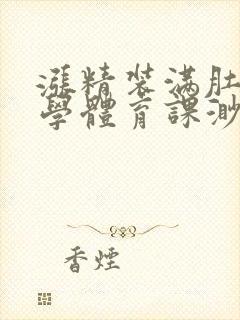 漲精装满肚
學體育課渺
香煙